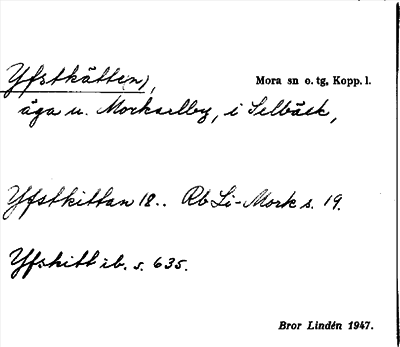 Yfstkätten), Mora sn o. tg, Kopp. l.
äga u. Morkarlby, i Selbäck,
Yfstkittan 18.. Rb Li-Mork s. 19.
Yfskitt ib. s. 635.
Bror Lindén 1947.